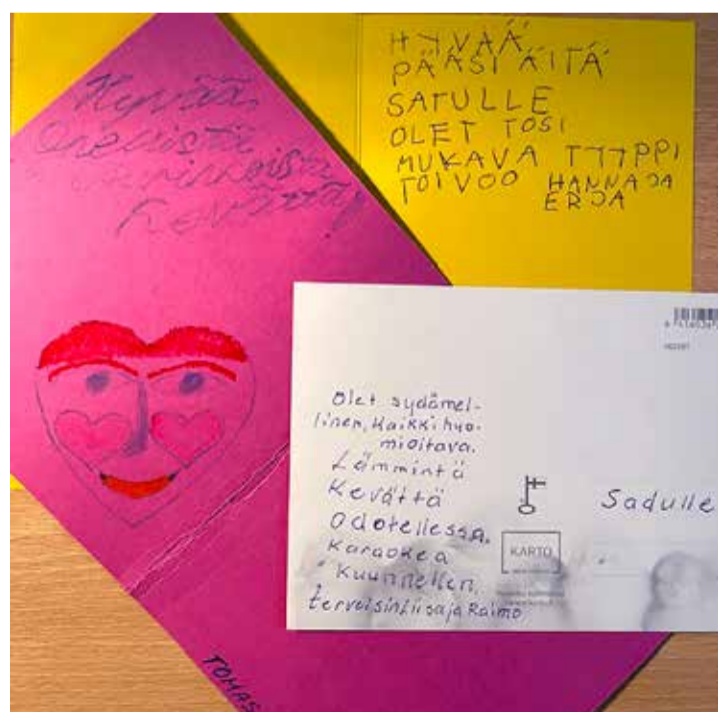 Hyvää
Kevättä!
HYVÄÄ
PÄÄSIÄITÄ
SATULLE
OLET TOSI
MUKAVA TYYPPI
TOIVOO HANNA JA
ERJA
Olet sydämel-
linen, Kaikki huo-
mioitava.
Lämmintä
Kevättä
odotellessa.
Karaokea
Kuunnellen.
terveisin Liisa ja Raimo
KARTO
Sadulle
TOMAS